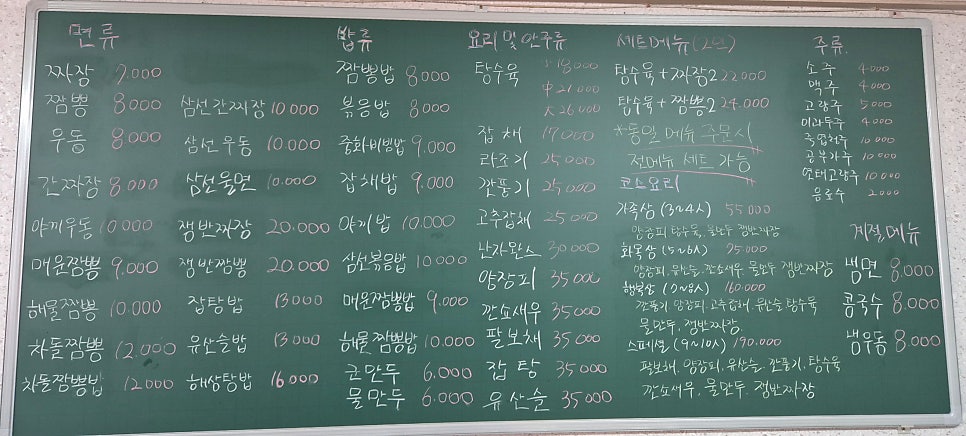 면류
짜장 7.000
짬뽕 8000
우동 8.000
간짜장 8.000
야끼우동 10000
매운짬뽕 9.000
해물짬뽕 10.000
차돌짬뽕 12.000
차돌짬뽕밥 12000
삼선간짜장 10.000
삼선우동 10.000
삼선울면 10.000
쟁반짜장 20.000
쟁반짬뽕 20.000
잡탕밥 13000
유산슬밥 13000
해상탕밥 16.000
밥류
짬뽕밥 8000
볶음밥 8000
중화비빔밥 9.000
잡채밥 9.000
야끼밥 10.000
삼선볶음밥 10.000
매운짬뽕밥 9.000
해물짬뽕밥 10.000
군만두 6.000
물만두 6.000
요리 및 안주류
탕수육 18000
中 21000
大 26000
잡채 17000
라조기 25000
깐풍기 25000
고추잡채 25000
난자완스 30000
양장피 35000
깐쇼새우 35000
팔보채 35000
잡탕 35000
유산슬 35000
세트메뉴 (2인)
탕수육+짜장2 22000
탕수육+짬뽕2 24.000
*동일 메뉴 주문시
전메뉴 세트 가능
코스요리
가족상 (3~4人) 55000
양장피 탕수육, 물만두 쟁반짜장
화목상 (5~6人) 75000
양장피, 유산슬, 깐쇼새우 물만두 쟁반짜장
행복상 (7~8人) 160.000
깐풍기 양장피, 고추잡채, 유산슬 탕수육
물만두, 쟁반짜장.
스페셜 (9~10人) 190.000
팔보채, 양장피, 유산슬, 깐풍기, 탕수육
깐쇼새우, 물만두, 쟁반짜장
주류.
소주 4.000
맥주 4.000
고량주 5000
이과두주 4.000
죽엽청주 10.000
공부가주 10.000
연태고량주 10000
음료수 2.000
계절메뉴
냉면 8.000
콩국수 8.000
냉우동 8.000